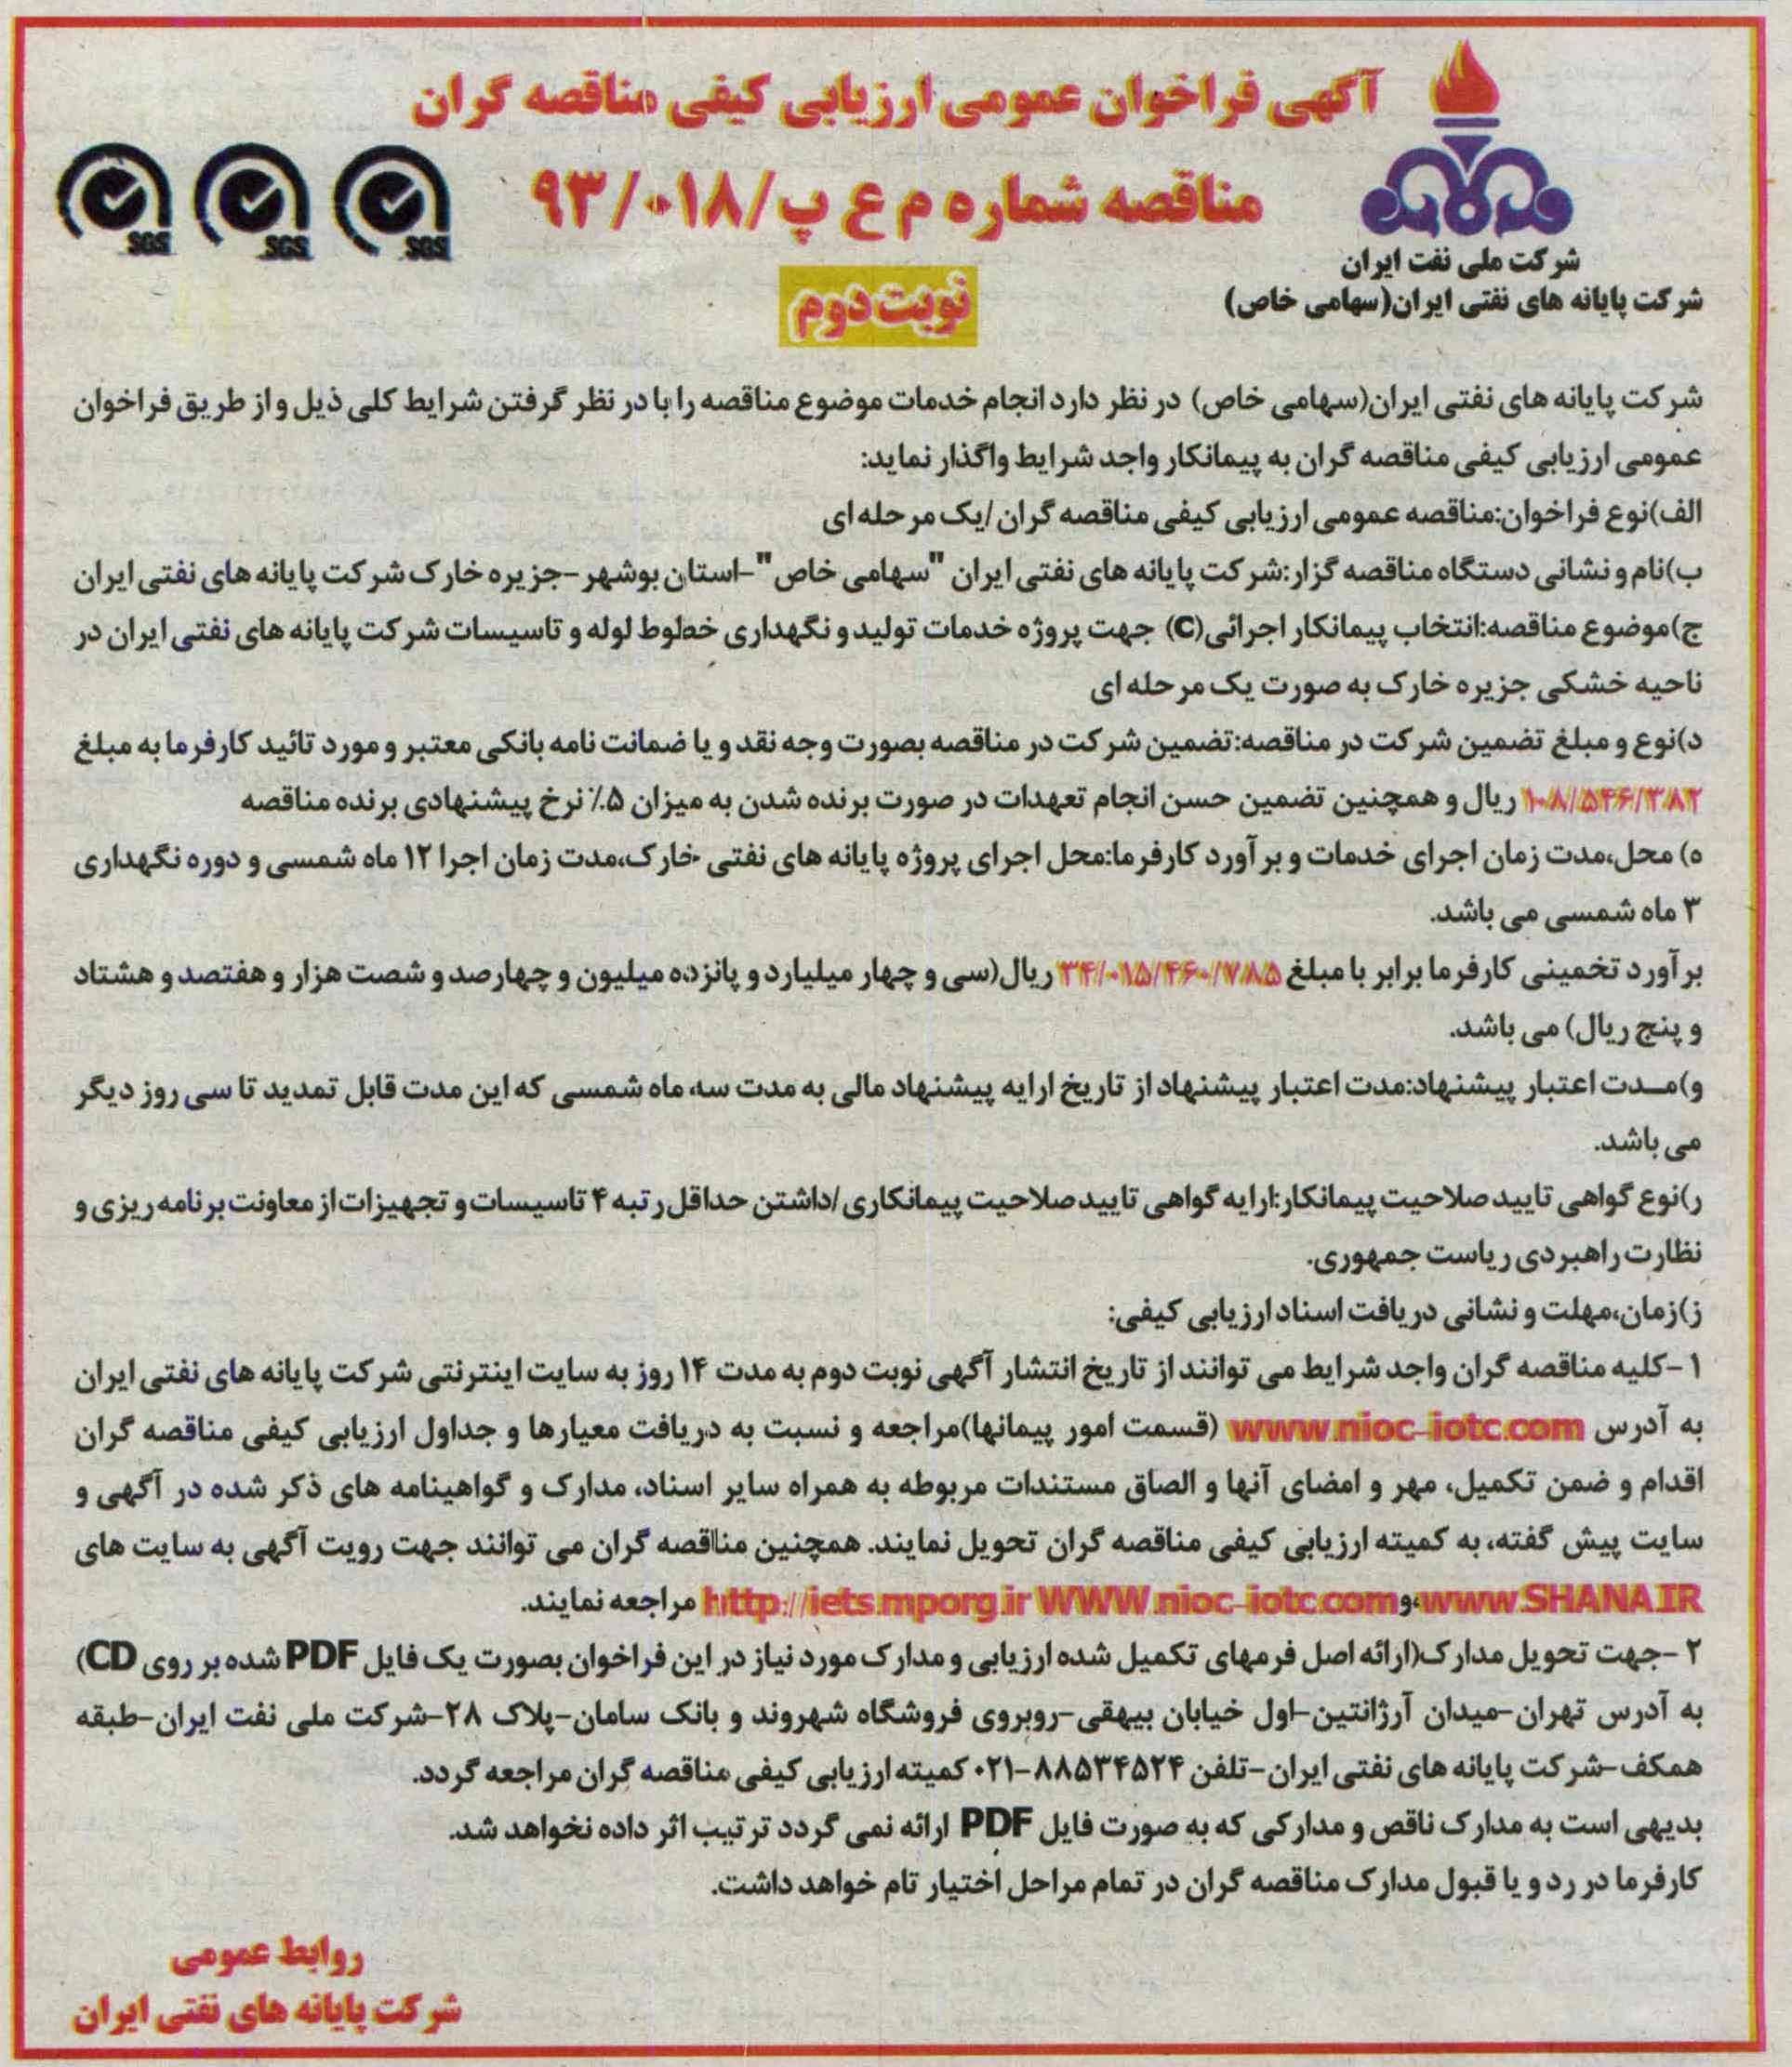 آگهی فراخوان عمومی ارزیابی کیفی مناقصه گران
مناقصه شماره م ع پ/۹۳/۰۱۸
نوبت دوم
شرکت ملی نفت ایران
شرکت پایانه های نفتی ایران(سهامی خاص)
SGS SGS SGS
شرکت پایانه های نفتی ایران(سهامی خاص) در نظر دارد انجام خدمات موضوع مناقصه را با در نظر گرفتن شرایط کلی ذیل و از طریق فراخوان
عمومی ارزیابی کیفی مناقصه گران به پیمانکار واجد شرایط واگذار نماید:
الف)نوع فراخوان:مناقصه عمومی ارزیابی کیفی مناقصه گران/یک مرحله ای
ب)نام و نشانی دستگاه مناقصه گزار:شرکت پایانه های نفتی ایران "سهامی خاص"-استان بوشهر-جزیره خارک شرکت پایانه های نفتی ایران
ج)موضوع مناقصه:انتخاب پیمانکار اجرائی(C) جهت پروژه خدمات تولید و نگهداری خطوط لوله و تاسیسات شرکت پایانه های نفتی ایران در
ناحیه خشکی جزیره خارک به صورت یک مرحله ای
د)نوع و مبلغ تضمین شرکت در مناقصه:تضمین شرکت در مناقصه بصورت وجه نقد و یا ضمانت نامه بانکی معتبر و مورد تائید کارفرما به مبلغ
۱۰۸/۵۴۶/۳۸۲ ریال و همچنین تضمین حسن انجام تعهدات در صورت برنده شدن به میزان ۵٪ نرخ پیشنهادی برنده مناقصه
ه) محل،مدت زمان اجرای خدمات و برآورد کارفرما:محل اجرای پروژه پایانه های نفتی خارک،مدت زمان اجرا ۱۲ ماه شمسی و دوره نگهداری
۳ ماه شمسی می باشد.
برآورد تخمینی کارفرما برابر با مبلغ ۳۴/۰۱۵/۴۶۰/۷۸۵ ریال(سی و چهار میلیارد و پانزده میلیون و چهارصد و شصت هزار و هفتصد و هشتاد
و پنج ریال) می باشد.
و)مـدت اعتبار پیشنهاد:مدت اعتبار پیشنهاد از تاریخ ارایه پیشنهاد مالی به مدت سه ماه شمسی که این مدت قابل تمدید تا سی روز دیگر
می باشد.
ر)نوع گواهی تایید صلاحیت پیمانکار:ارایه گواهی تایید صلاحیت پیمانکاری/داشتن حداقل رتبه ۴ تاسیسات و تجهیزات از معاونت برنامه ریزی و
نظارت راهبردی ریاست جمهوری.
ز)زمان،مهلت و نشانی دریافت اسناد ارزیابی کیفی:
۱-کلیه مناقصه گران واجد شرایط می توانند از تاریخ انتشار آگهی نوبت دوم به مدت ۱۴ روز به سایت اینترنتی شرکت پایانه های نفتی ایران
به آدرس www.nioc-iotc.com (قسمت امور پیمانها)مراجعه و نسبت به دریافت معیارها و جداول ارزیابی کیفی مناقصه گران
اقدام و ضمن تکمیل، مهر و امضای آنها و الصاق مستندات مربوطه به همراه سایر اسناد، مدارک و گواهینامه های ذکر شده در آگهی و
سایت پیش گفته، به کمیته ارزیابی کیفی مناقصه گران تحویل نمایند. همچنین مناقصه گران می توانند جهت رویت آگهی به سایت های
www.SHANA.IR،و http://iets.mporg.ir WWW.nioc-iotc.com مراجعه نمایند.
۲-جهت تحویل مدارک(ارائه اصل فرمهای تکمیل شده ارزیابی و مدارک مورد نیاز در این فراخوان بصورت یک فایل PDF شده بر روی CD)
به آدرس تهران-میدان آرژانتین-اول خیابان بیهقی-روبروی فروشگاه شهروند و بانک سامان-پلاک ۲۸-شرکت ملی نفت ایران-طبقه
همکف-شرکت پایانه های نفتی ایران-تلفن ۸۸۵۳۴۵۲۴-۰۲۱ کمیته ارزیابی کیفی مناقصه گران مراجعه گردد.
بدیهی است به مدارک ناقص و مدارکی که به صورت فایل PDF ارائه نمی گردد ترتیب اثر داده نخواهد شد.
کارفرما در رد و یا قبول مدارک مناقصه گران در تمام مراحل اختیار تام خواهد داشت.
روابط عمومی
شرکت پایانه های نفتی ایران